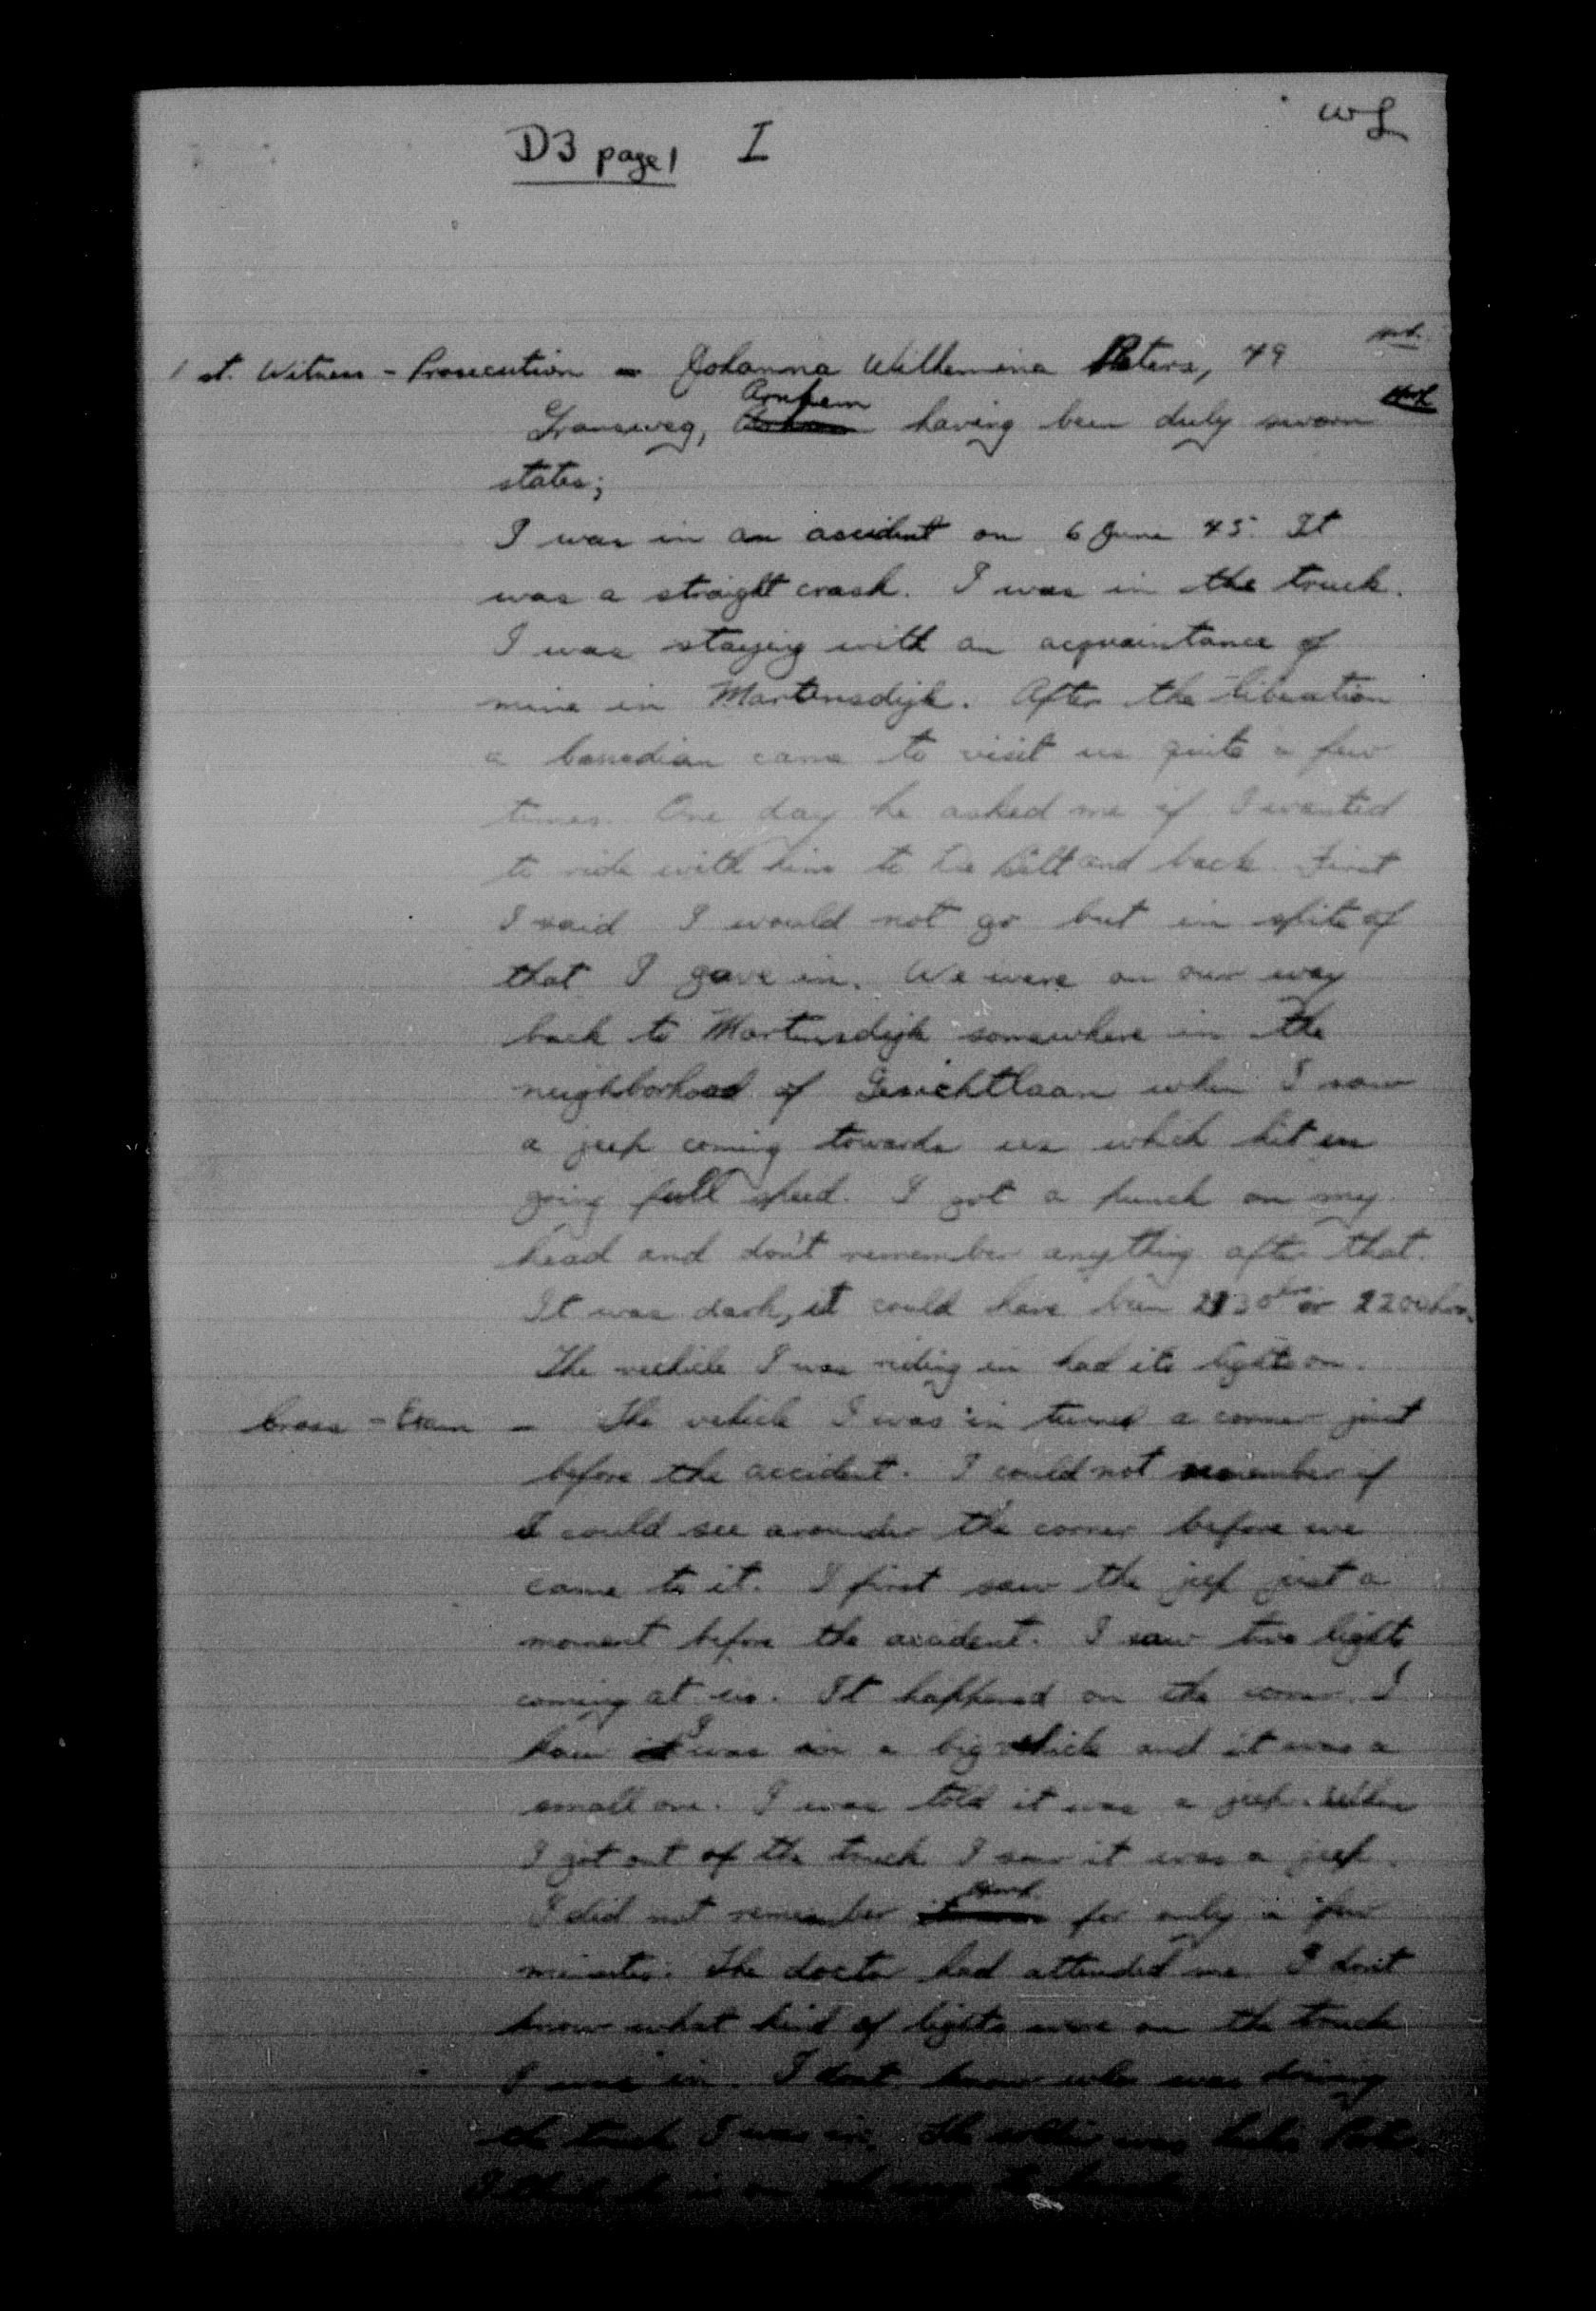 D3 page 1 I
1st. Witness - Prosecution - Johanna Wilhemina Peters, 49
Arnhem
having been duly sworn
states;
I was in an accident on 6 June 45. It
was a straight crash. I was in the truck.
I was staying with an acquaintance of
mine in Martensdijk. After the liberation
a Canadian came to visit us quite a few
times. One day he asked me if I wanted
to ride with him to De Bilt and back. First
I said I would not go but in spite of
that I gave in. We were on our way
back to Martensdijk somewhere in the
neighborhood of Gesichtlaan when I saw
a jeep coming towards us which hit us
going full speed. I got a punch on my
head and don't remember anything after that.
It was dark, it could have been 2130 hrs or 2200 hrs.
The vechicle I was riding in had its lights on.
Cross - Exam - The vehicle I was in turned a corner just
before the accident. I could not remember if
I could see around the corner before we
came to it. I first saw the jeep just a
moment before the accident. I saw two lights
coming at us. It happened on the corner. I
know I was in a big vehicle and it was a
small one. I was told it was a jeep. When
I got out of the truck I saw it was a jeep.
I did not remember for only a few
minutes. The doctor had attended me. I don't
know what kind of lights were on the truck
I was in. I dont know who was driving
the truck I was in. The soldier was